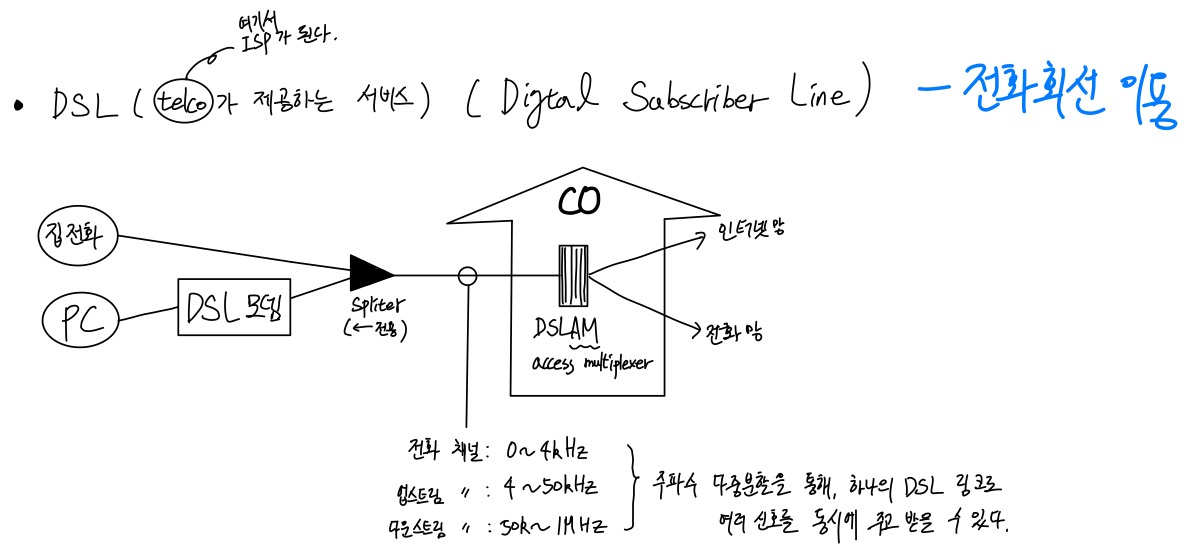 여기서
ISP가 된다.
• DSL (telco가 제공하는 서비스) (Digtal Subscriber Line) - 전화회선 이용
CO
집전화
인터넷 망
PC
DSL 모뎀
Spliter
(← 전용)
DSLAM
access multiplexer
전화 망
전화 채널 : 0~4kHz
업스트림 〃 : 4~50kHz
다운스트림 〃 : 50k~1MHz
주파수 다중분할을 통해, 하나의 DSL 링크로
여러 신호를 동시에 주고 받을 수 있다.